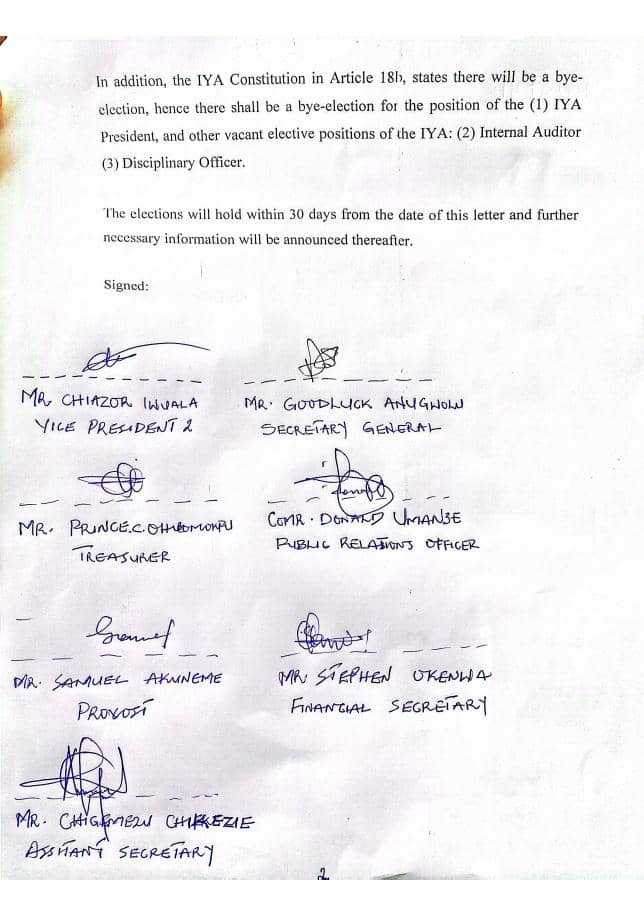 In addition, the IYA Constitution in Article 18b, states there will be a bye-
election, hence there shall be a bye-election for the position of the (1) IYA
President, and other vacant elective positions of the IYA: (2) Internal Auditor
(3) Disciplinary Officer.
The elections will hold within 30 days from the date of this letter and further
necessary information will be announced thereafter.
Signed:
MR. CHIAZOR IWUALA
VICE PRESIDENT 2
MR. GOODLUCK
SECRETARY GENERAL
MR. PRINCE.C.
TREASURER
COMR. DONALD
PUBLIC RELATIONS OFFICER
MR. SAMUEL AKUNEME
PROVOST
MR STEPHEN OKENWA
FINANCIAL SECRETARY
MR.
ASSITANT SECRETARY
2